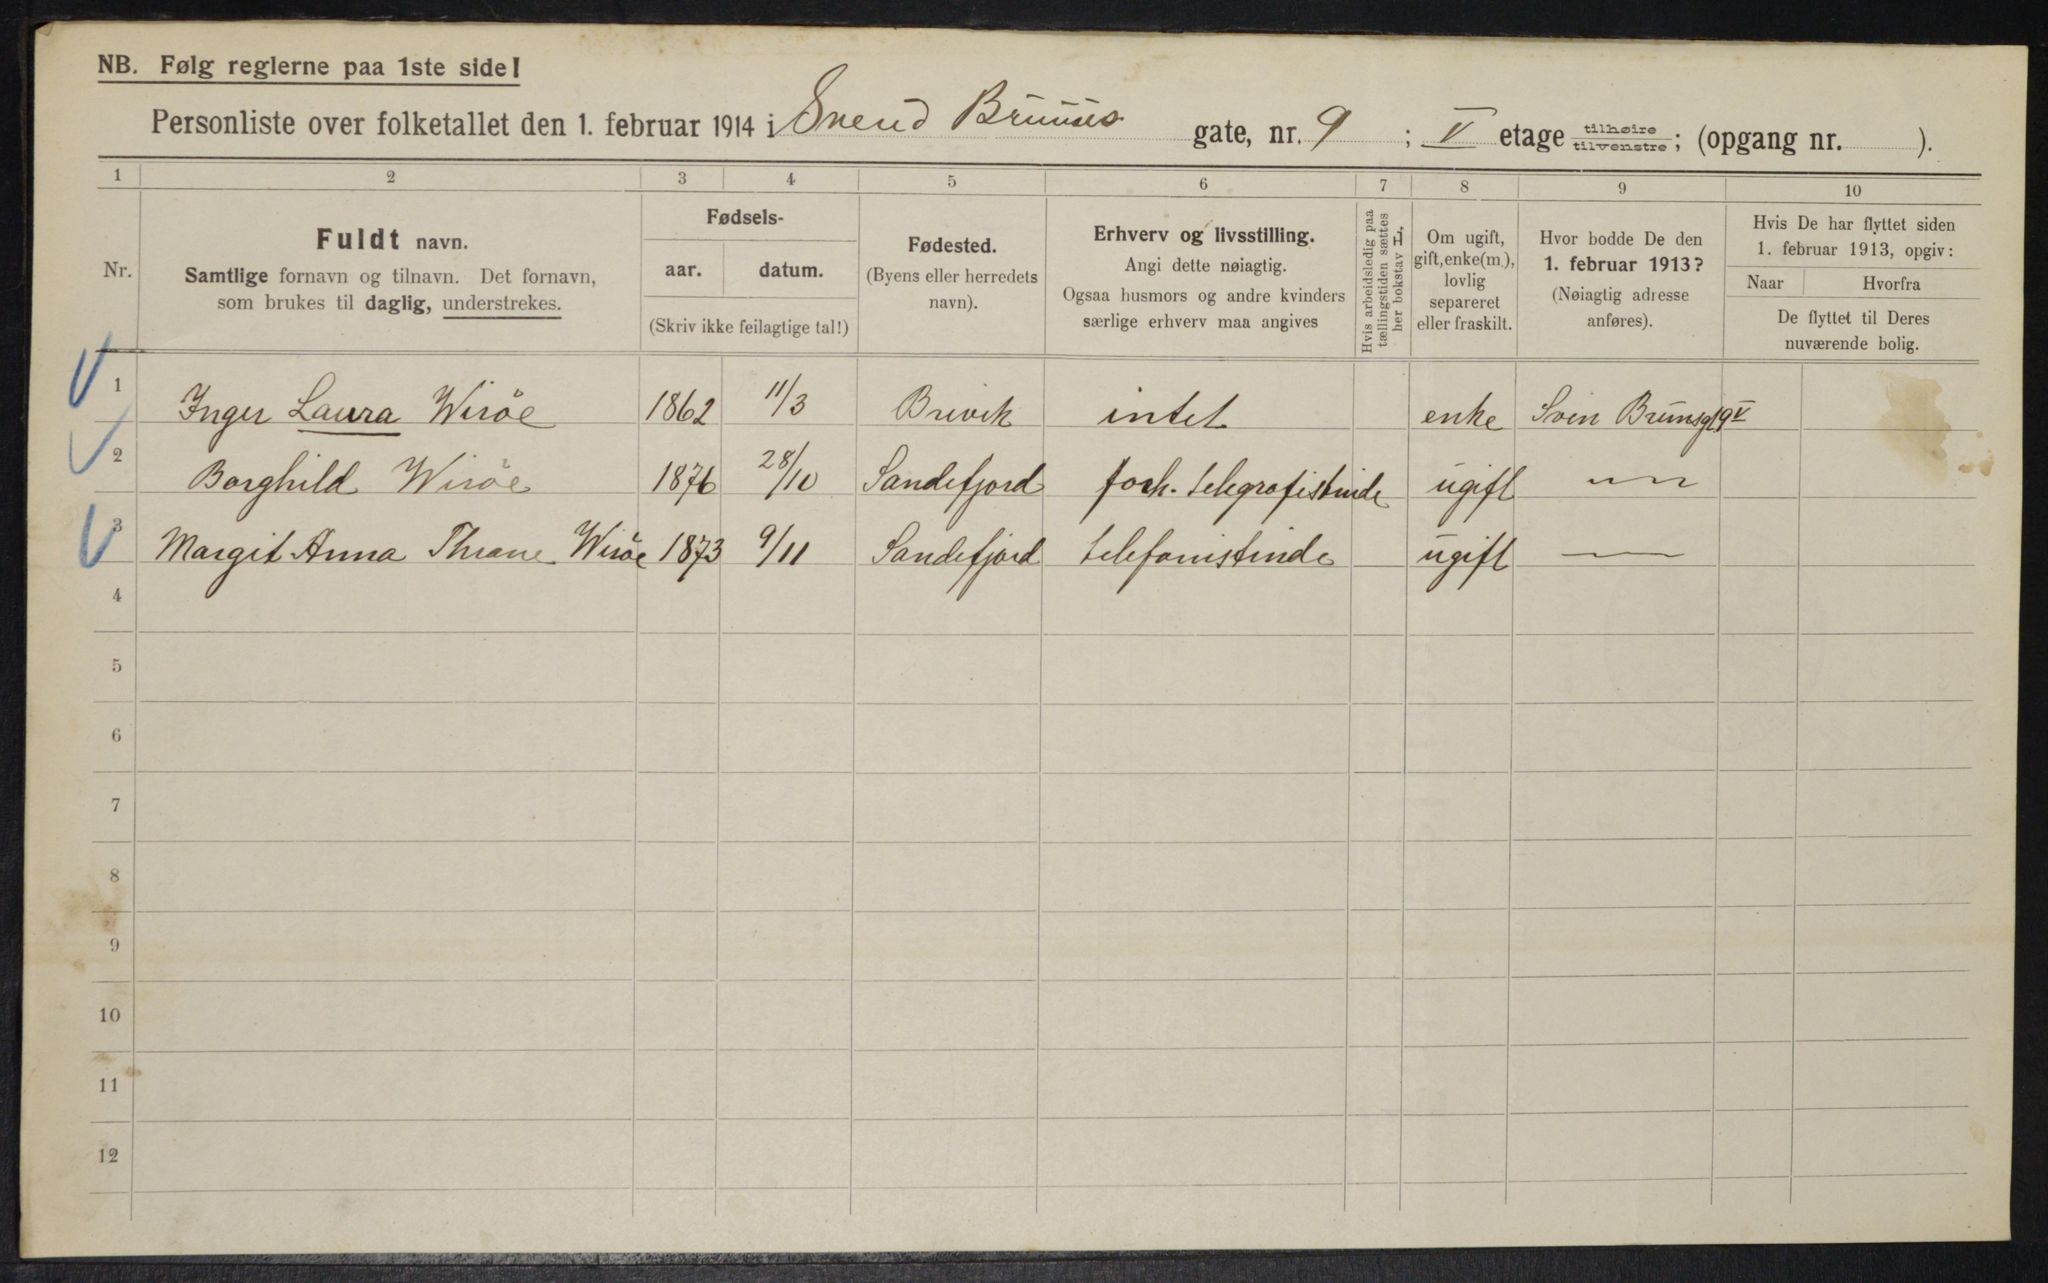 NB. Følg reglerne paa 1ste side!
Personliste over folketallet den 1. februar 1914 i Svend Bruuns gate, nr. 9 ; V etage tilhøire tilvenstre; (opgang nr. ).
1 2 3 4 5 6 7 8 9 10
Nr.
Fuldt navn.
Samtlige fornavn og tilnavn. Det fornavn,
som brukes til daglig, understrekes.
Fødsels-
aar. datum.
(Skriv ikke feilagtige tal!)
Fødested.
(Byens eller herredets
navn).
Erhverv og livsstilling.
Angi dette nøiagtig.
Ogsaa husmors og andre kvinders
særlige erhverv maa angives
Hvis arbeidsledig paa
tællingstiden sættes
her bokstav L.
Om ugift,
gift, enke(m.),
lovlig
separeret
eller fraskilt.
Hvor bodde De den
1. februar 1913?
(Nøiagtig adresse
anføres).
Hvis De har flyttet siden
1. februar 1913, opgiv:
Naar Hvorfra
De flyttet til Deres
nuværende bolig.
1 Inger Laura Wirøe 1862 11/3 Brevik intet enke Sven Brunsgt 9 V
2 Borghild Wirøe 1876 28/10 Sandefjord forh. telegrafistinde ugift —〃—
3 Margit Anna Thrane Wirøe 1873 9/11 Sandefjord telefonistinde ugift —〃—
4
5
6
7
8
9
10
11
12